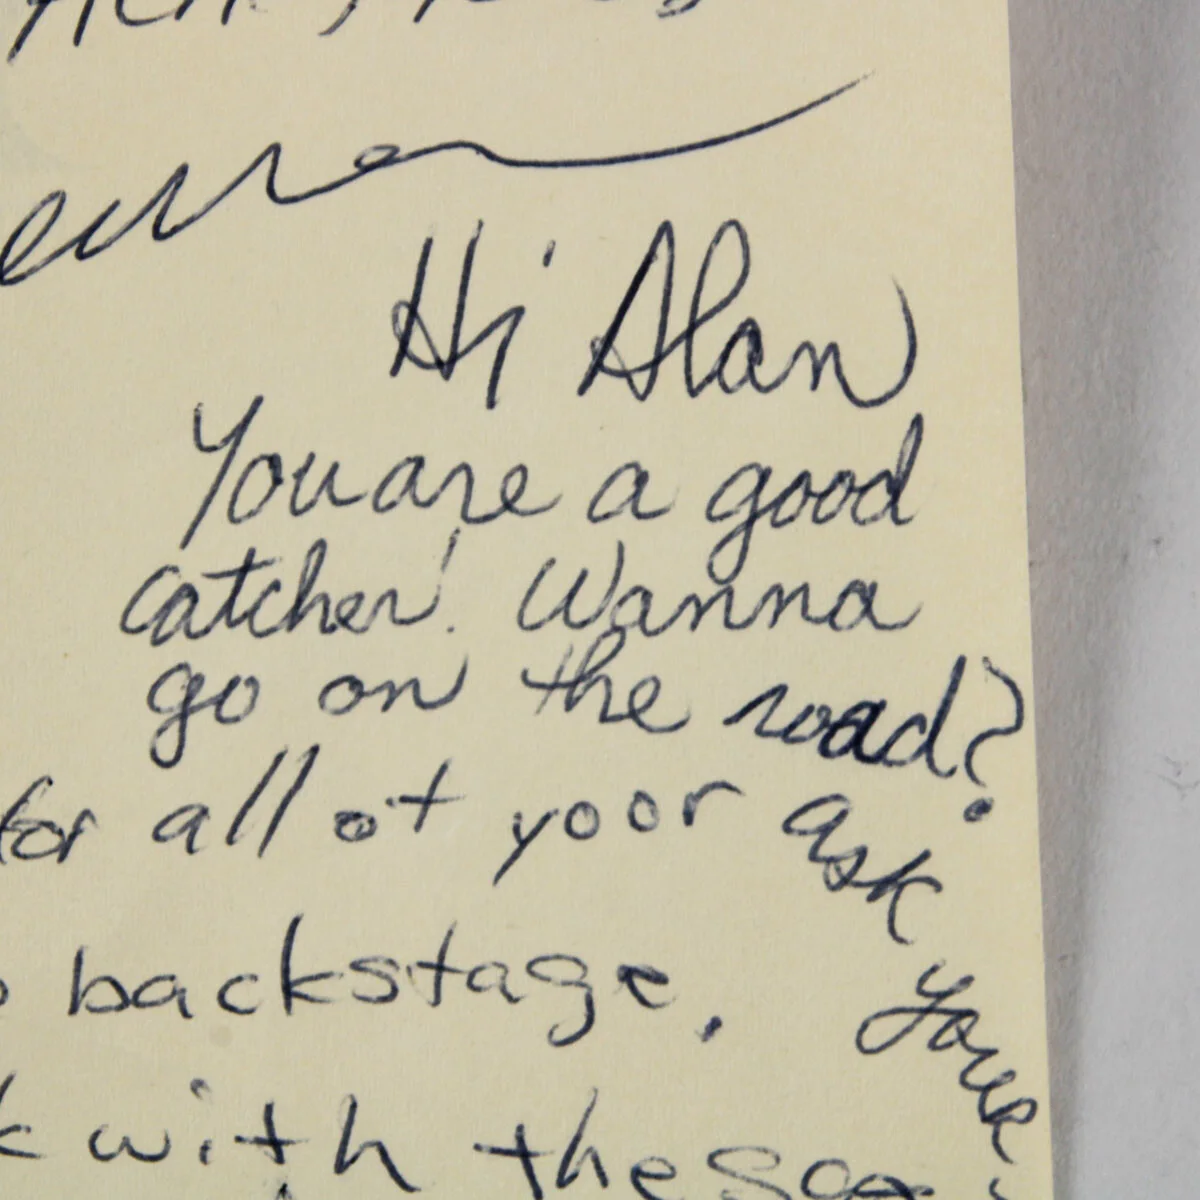 Hi Alan
You are a good
catcher! Wanna
go on the road?
ask
your
for all of yoor
backstage.
with the